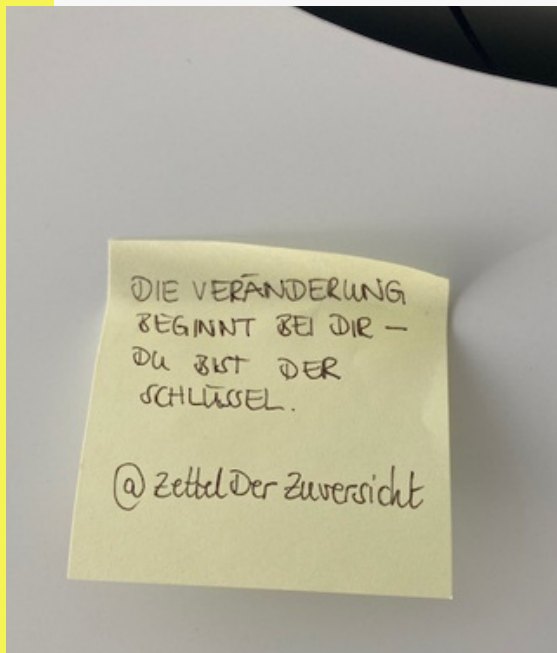 DIE VERÄNDERUNG
BEGINNT BEI DIR –
DU BIST DER
SCHLÜSSEL.
@ZettelDerZuversicht